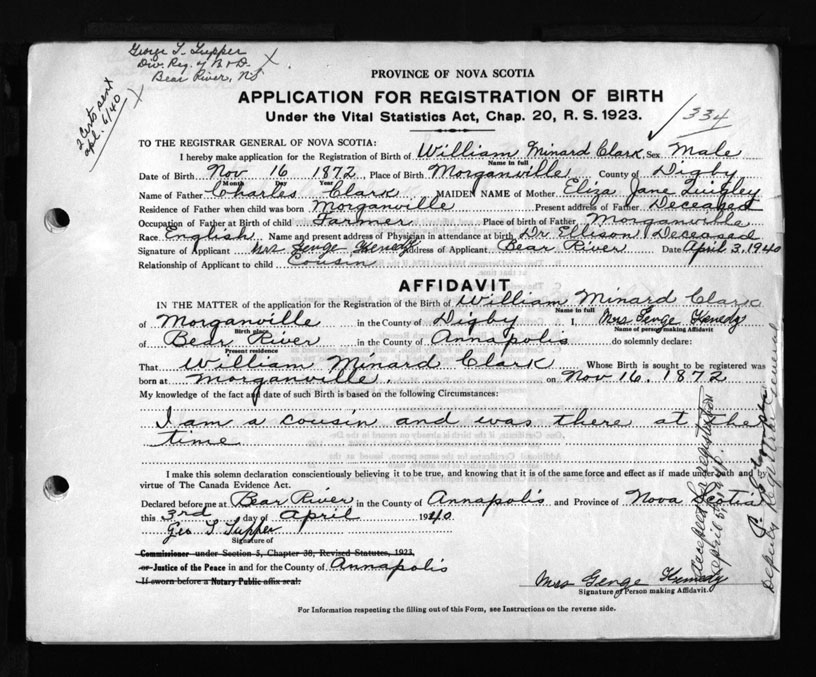 George T. Tupper
Div. Reg. of B & D.
Bear River, NS
2 certs sent
apl. 6/40
PROVINCE OF NOVA SCOTIA
APPLICATION FOR REGISTRATION OF BIRTH
Under the Vital Statistics Act, Chap. 20, R. S. 1923.
334
TO THE REGISTRAR GENERAL OF NOVA SCOTIA:
I hereby make application for the Registration of Birth of William Minard Clark Sex Male
Name in full
Date of Birth Nov 16 1872 Place of Birth Morganville County of Digby
Month Day Year
Name of Father Charles Clark MAIDEN NAME of Mother Eliza Jane Quigley
Residence of Father when child was born Morganville Present address of Father Deceased
Occupation of Father at Birth of child Farmer Place of birth of Father Morganville
Race English Name and present address of Physician in attendance at birth Dr Ellison Deceased
Signature of Applicant Mrs Genge Kenedy Address of Applicant Bear River Date April 3, 1940
Relationship of Applicant to child Cousin
AFFIDAVIT
IN THE MATTER of the application for the Registration of the Birth of William Minard Clark
Name in full
of Morganville in the County of Digby I, Mrs Genge Kenedy
Birth place Name of person making Affidavit
of Bear River in the County of Annapolis do solemnly declare:
Present residence
That William Minard Clark Whose Birth is sought to be registered was
born at Morganville. on Nov 16. 1872
My knowledge of the fact and date of such Birth is based on the following Circumstances:
I am a cousin and was there at the
time
I make this solemn declaration conscientiously believing it to be true, and knowing that it is of the same force and effect as if made under oath and by
virtue of The Canada Evidence Act.
Declared before me at Bear River in the County of Annapolis and Province of Nova Scotia
this 3rd day of April 1940
Geo T Tupper
Signature of
Commissioner under Section 5, Chapter 38, Revised Statutes, 1923,
or Justice of the Peace in and for the County of Annapolis
If sworn before a Notary Public affix seal.
Mrs Genge Kennedy
Signature of Person making Affidavit.
For Information respecting the filling out of this Form, see Instructions on the reverse side.
Accepted for registration
April 5th
Deputy Registrar General